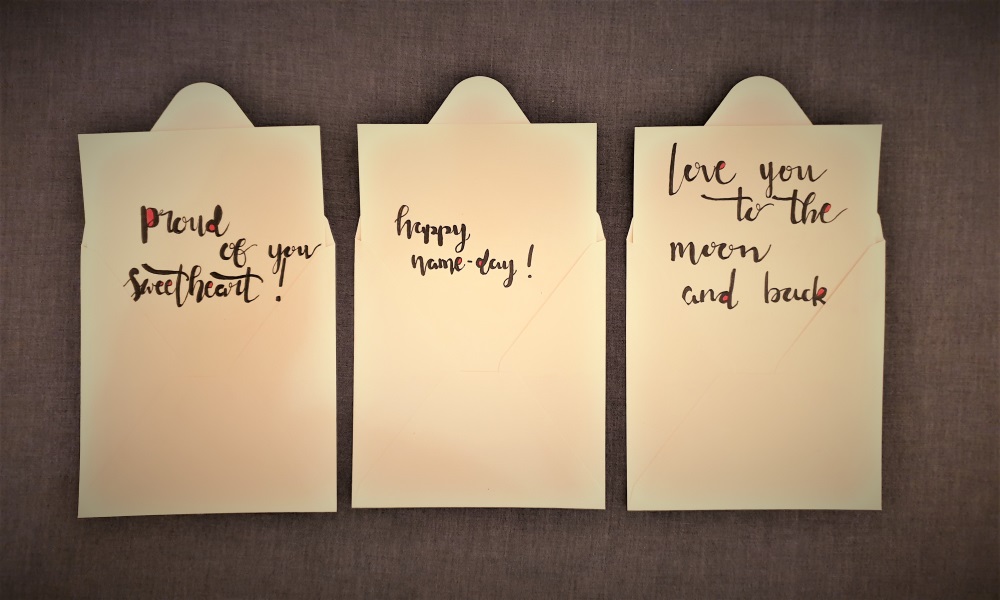 proud
of you
sweetheart!
happy
name-day!
love you
to the
moon
and back